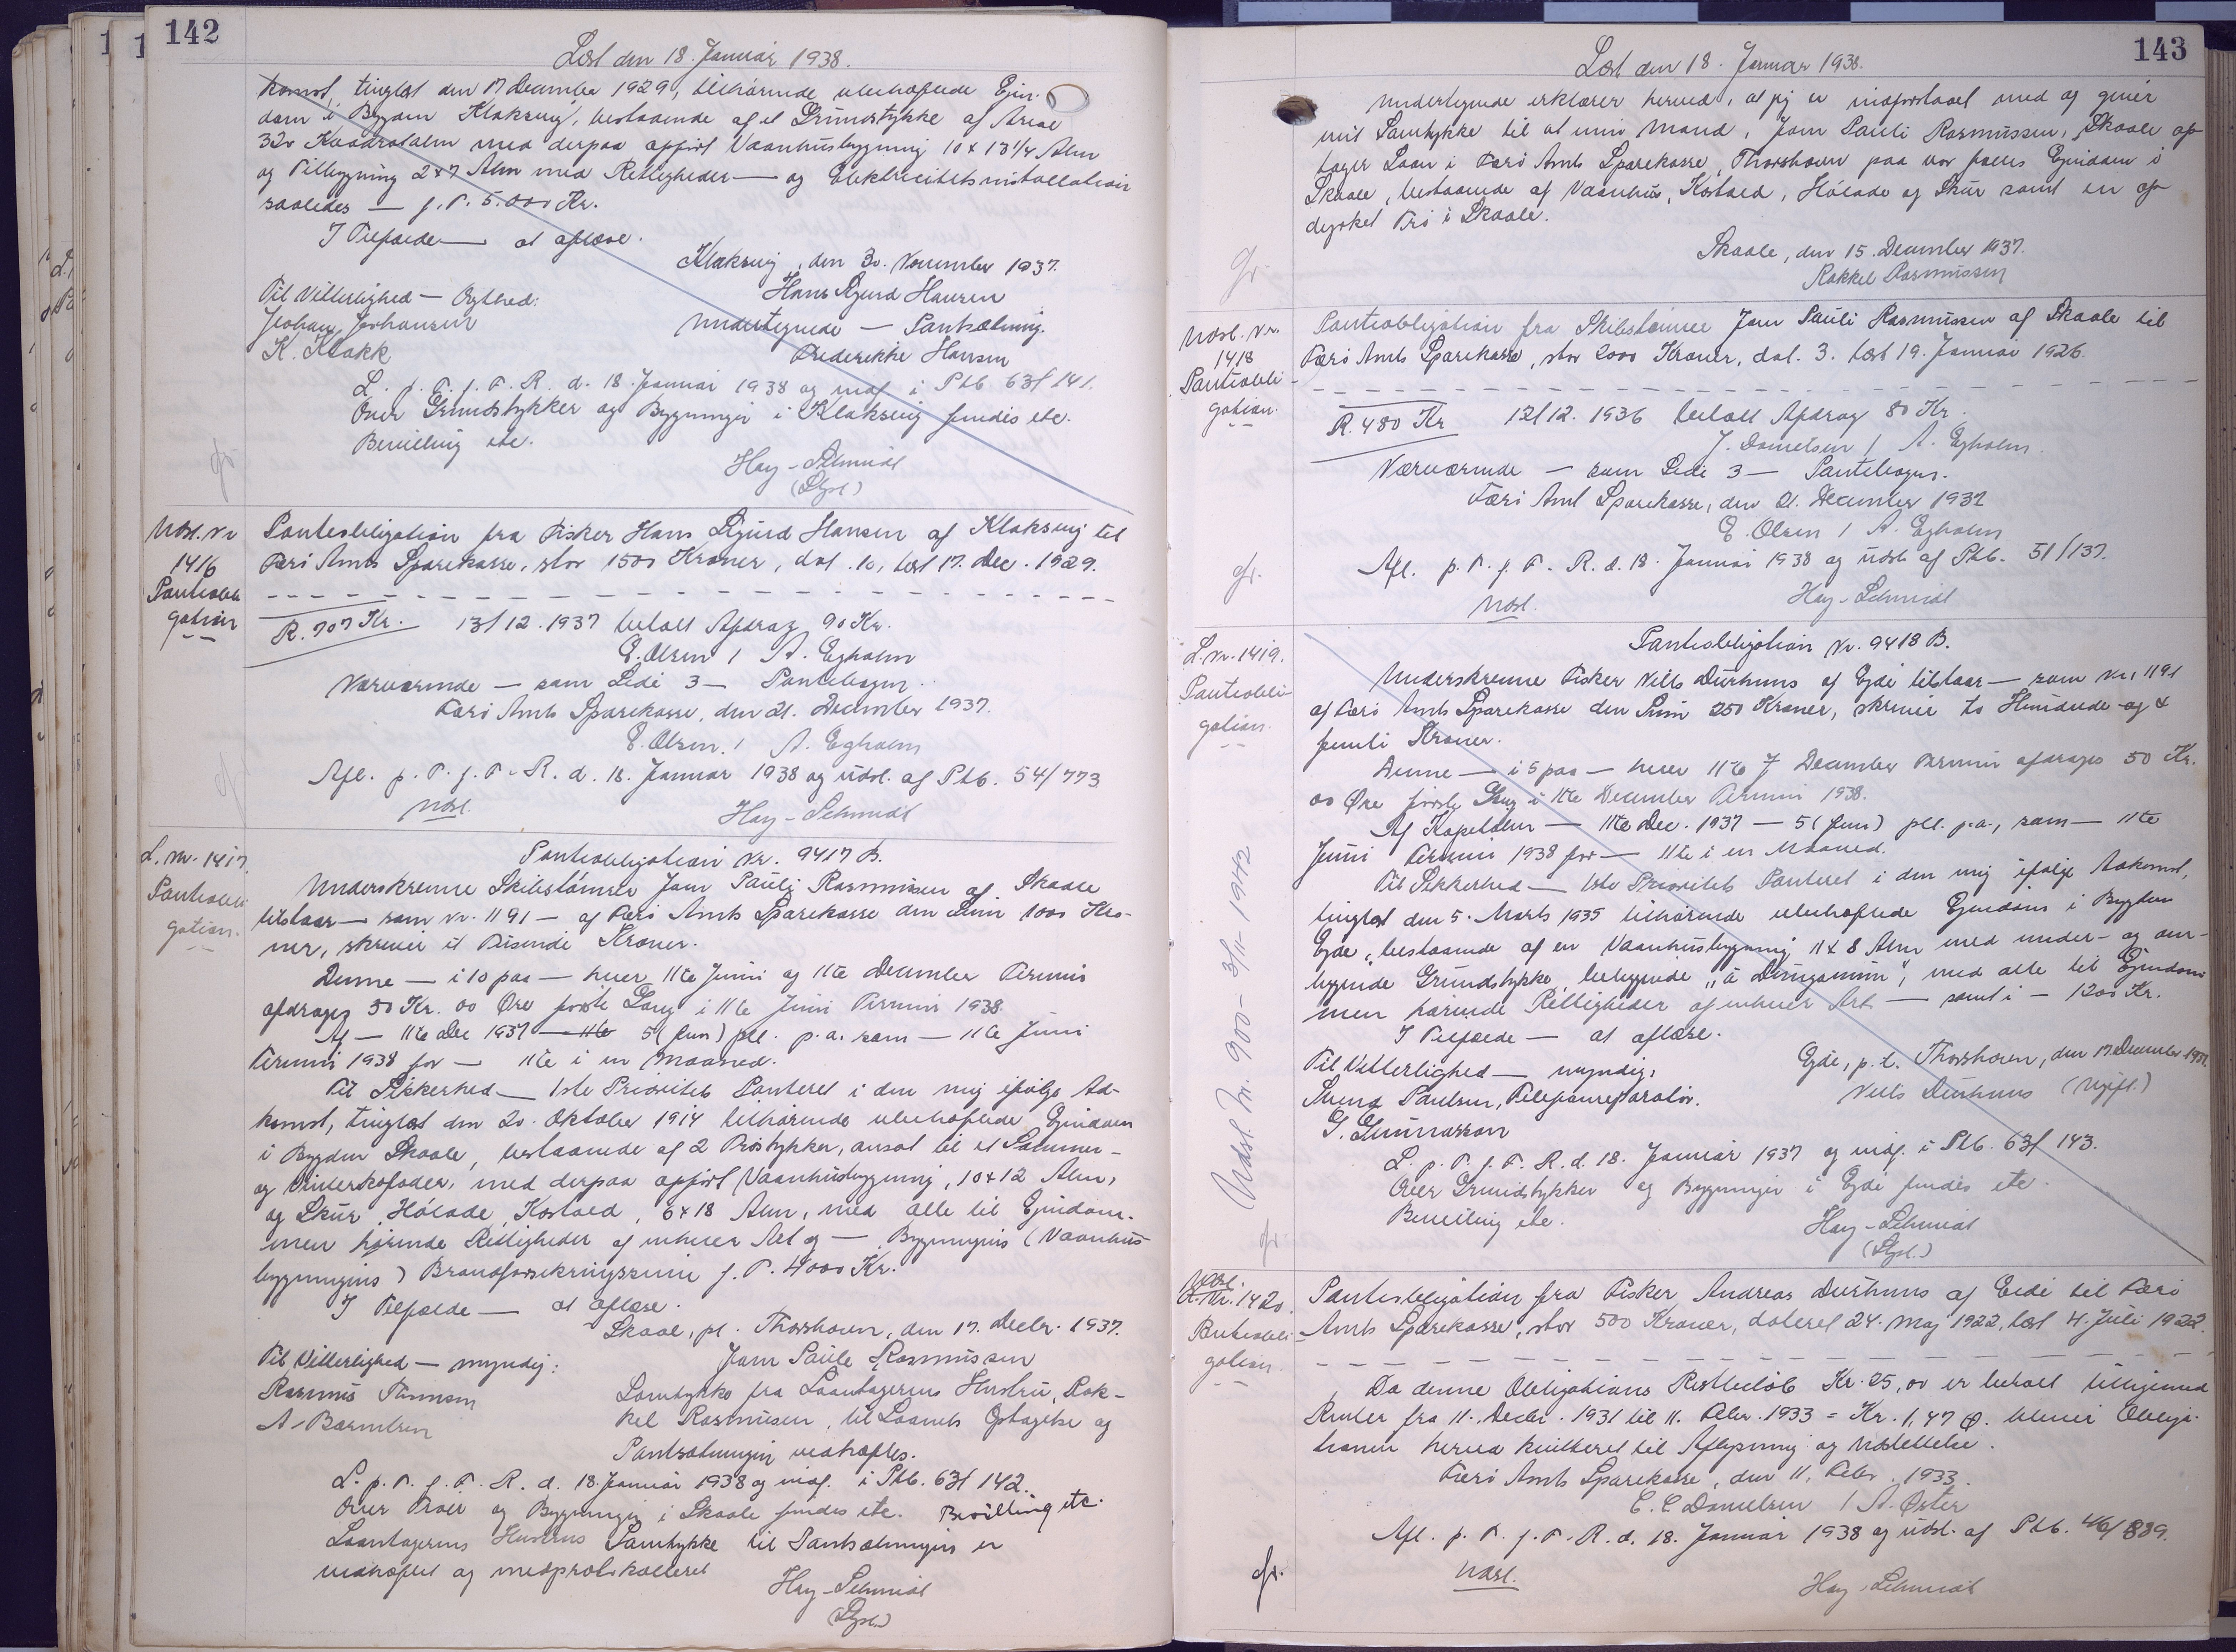 142
Læst den 18. Januar 1938.
komst, tinglæst den 17 December 1929, tilhørende ubehæftede Ejen-
dom i Bygden Klaksvig, bestaaende af et Grundstykke af Areal
320 Kvadratalen med derpaa opført Vaanhusbygning 10 x 13 1/4 Alen
og Tilbygning 2x7 Alen med Rettigheder — og Elektricitetsinstallation
saaledes — f. T. 5.000 Kr.
I Tilfælde — at aflæse.
Klaksvig, den 30. November 1937.
Til Vitterlighed — Ægthed:
Hans Sjurd Hansen
Johan Johansen
Undertegnede — Pantsætning.
K. Klakk
Frederikke Hansen
L. p. T. f. F. R. d. 18. Januar 1938 og indf. i Ptb. 63/141.
Over Grundstykker og Bygninger i Klaksvig findes etc.
Bevilling etc.
Hay-Schmidt
(Stpl.)
Udsl. Nr
1416
Pantobli
gation
Pantobligation fra Fisker Hans Sjurd Hansen af Klaksvig til
Færø Amts Sparekasse, stor 1500 Kroner, dat. 10, læst 17. Dec. 1929.
R. 707 Kr. 13/12.1937 betalt Afdrag 90 Kr.
E. Olsen / A. Egholm
Nærværende — som Side 3 — Pantebogen.
Færø Amts Sparekasse, den 21. December 1937.
E. Olsen. / A. Egholm
Afl. p. T. f. F. R. d. 18. Januar 1938 og udsl. af Ptb. 54/773.
Udsl.
Hay-Schmidt
L. Nr. 1417.
Pantobli
gation.
Pantobligation Nr. 9417 B.
Underskrevne Skibstømrer Joen Pauli Rasmussen af Skaale
tilstaar — som Nr. 1191 — af Færø Amts Sparekasse den Sum 1000 Kro-
ner, skriver et Tusinde Kroner.
Denne — i 10 paa — hver 11te Juni og 11te December Termin
afdrages 50 Kr. 00 Øre første Gang i 11te Juni Termin 1938.
Af — 11te Dec 1937 — 11te 5 (fem) pCt. p.a. som — 11te Juni
Termin 1938 for — 11te i en Maaned.
Til Sikkerhed — 1ste Prioritets Panteret i den mig ifølge Ad-
komst, tinglæst den 20. Oktober 1914 tilhørende ubehæftede Ejendom
i Bygden Skaale, bestaaende af 2 Trøstykker, ansat til et Sommer-
og Vinterkofoder, med derpaa opført Vaanhusbygning, 10x12 Alen,
og Skur, Hølade, Kostald, 6x18 Alen, med alle til Ejendom-
men hørende Rettigheder af enhver Art og — Bygningens (Vaanhus-
bygningens) Brandforsikringssum f. T. 4000 Kr.
I Tilfælde — at aflæse.
Skaale, pt. Thorshavn, den 17. Decbr. 1937.
Til Vitterlighed — myndig:
Joen Paule Rasmussen
Rasmus
Samtykke fra Laantagerens Hustru, Rak-
kel Rasmussen, til Laanets Optagelse og
Pantsætningen vedhæftes.
L. p. T. f. F. R. d. 18. Januar 1938 og indf. i Ptb. 63/142.
Over Trøer og Bygninger i Skaale findes etc. Bevilling etc.
Laantagerens Hustrus Samtykke til Pantsætningen er
vedhæftet og medprotokolleret
Hay-Schmidt
(Stpl.)
143
Læst den 18. Januar 1938.
Undertegnede erklærer herved, at jeg er indforstaaet med og giver
mit Samtykke til at min Mand, Joen Pauli Rasmussen, Skaale op-
tager Laan i Færø Amts Sparekasse, Thorshavn paa vor fælles Ejendom i
Skaale, bestaaende af Vaanhus, Kostald, Hølade og Skur samt en op-
dyrket Trø i Skaale.
Skaale, den 15. December 1937.
Rakkel Rasmussen
Udsl. Nr.
1418
Pantobli-
gation.
Pantobligation fra Skibstømrer Joen Pauli Rasmussen af Skaale til
Færø Amts Sparekasse, stor 2000 Kroner, dat. 3. læst 19. Januar 1926.
R. 480 Kr 12/12. 1936 betalt Afdrag 80 Kr.
J. Danielsen / A. Egholm.
Nærværende — som Side 3 — Pantebogen.
Færø Amt Sparekasse, den 21. December 1937
E. Olsen / A. Egholm
Afl. p. T. f. F. R. d. 18. Januar 1938 og udsl. af Ptb. 51/137.
Udsl.
Hay-Schmidt
L. Nr. 1419.
Pantobli-
gation.
Pantobligation Nr. 9418 B.
Underskrevne Fisker Nills Durhuus af Ejde tilstaar — som Nr. 1191
af Færø Amts Sparekasse den Sum 250 Kroner, skriver to Hundrede og
femti Kroner.
Denne — i 5 paa — hver 11te December Termin afdrages 50 Kr.
00 Øre første Gang i 11te December Termin 1938.
Af Kapitalen — 11te Dec. 1937 — 5 (fem) pCt. p.a., som — 11te
Juni Termin 1938 for — 11te i en Maaned.
Til Sikkerhed — 1ste Prioritets Panteret i den mig ifølge Adkomst,
tinglæst den 5. Marts 1935 tilhørende ubehæftede Ejendom i Bygden
Ejde, bestaaende af en Vaanhusbygning 11x8 Alen med under- og om-
liggende Grundstykke, beliggende "á Dungunum", med alle til Ejendom-
men hørende Rettigheder af enhver Art — samt i — 1200 Kr.
I Tilfælde — at aflæse.
Ejde, p. t. Thorshavn, den 17. December 1937.
Til Vitterlighed — myndig:
Nills Durhuus (Ugift.)
Svend Paulsen, Telefonreparatør.
G. Gunnarsson
L. p. T. f. F. R. d. 18. Januar 1937 og indf. i Ptb. 63/143.
Over Grundstykker og Bygninger i Ejde findes etc.
Bevilling etc.
Hay-Schmidt
(Stpl.)
Udsl. Nr. 900 - 3/11-1942
Udsl.
L. Nr. 1420.
Pantobli-
gation.
Pantobligation fra Fisker Andreas Durhuus af Eide til Færø
Amts Sparekasse, stor 500 Kroner, dateret 24. Maj 1922, læst 4. Juli 1922.
Da denne Obligations Restbeløb Kr. 25,00 er betalt tilligemed
Renter fra 11. Decbr. 1931 til 11. Febr. 1933 = Kr. 1,47 Ø. bliver Obliga-
tionen herved kvitteret til Aflysning og Udslettelse.
Færø Amts Sparekasse, den 11. Febr. 1933.
C. C. Danielsen / A. Øster
Afl. p. T. f. F. R. d. 18. Januar 1938 og udsl. af Ptb. 46/889.
Udsl.
Hay-Schmidt